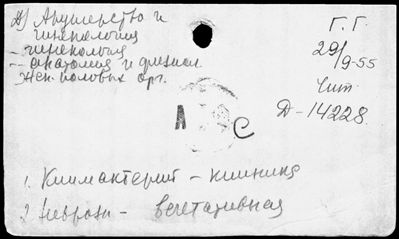 Акушерство и
гинекология
- гинекология
- анатомия и физиол.
жен. половых орг.
Г. Г.
29/
9-55
Чит.
Д-14228.
А
С
1. Климактерий - клиника
2 Неврозы - вегетативная